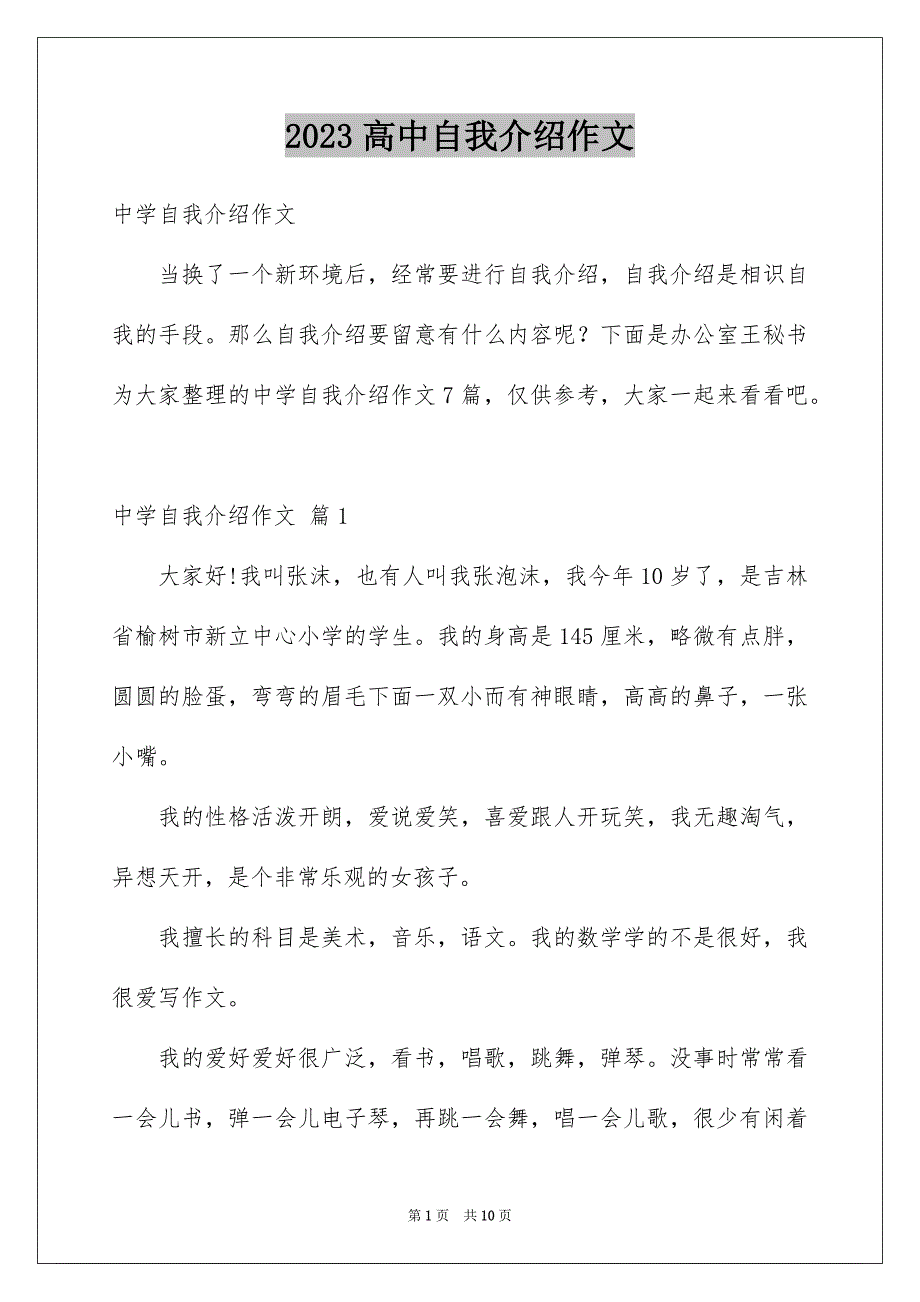 2023高中自我介绍作文
中学自我介绍作文
当换了一个新环境后，经常要进行自我介绍，自我介绍是相识自
我的手段。那么自我介绍要留意有什么内容呢？下面是办公室王秘书
为大家整理的中学自我介绍作文7篇，仅供参考，大家一起来看看吧。
中学自我介绍作文 篇1
大家好!我叫张沫，也有人叫我张泡沫，我今年10岁了，是吉林
省榆树市新立中心小学的学生。我的身高是145厘米，略微有点胖，
圆圆的脸蛋，弯弯的眉毛下面一双小而有神眼睛，高高的鼻子，一张
小嘴。
我的性格活泼开朗，爱说爱笑，喜爱跟人开玩笑，我无趣淘气，
异想天开，是个非常乐观的女孩子。
我擅长的科目是美术，音乐，语文。我的数学学的不是很好，我
很爱写作文。
我的爱好爱好很广泛，看书，唱歌，跳舞，弹琴。没事时常常看
一会儿书，弹一会儿电子琴，再跳一会舞，唱一会儿歌，很少有闲着
第1页 共10页